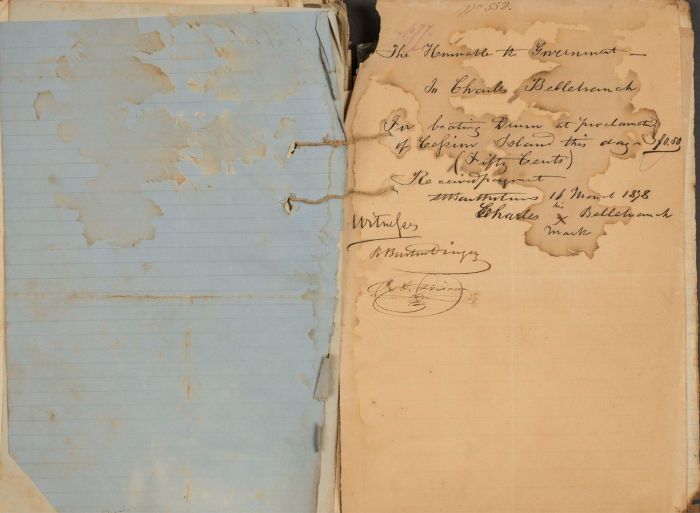 No 552.
The Honorable the Government —
To Charles Belletranch
For beating Drum at proclamation
of Cession Island this day — $0.50
(Fifty Cents)
Received payment
St Bartholms 16 March 1878
Charles his X mark Belletranch
Witness